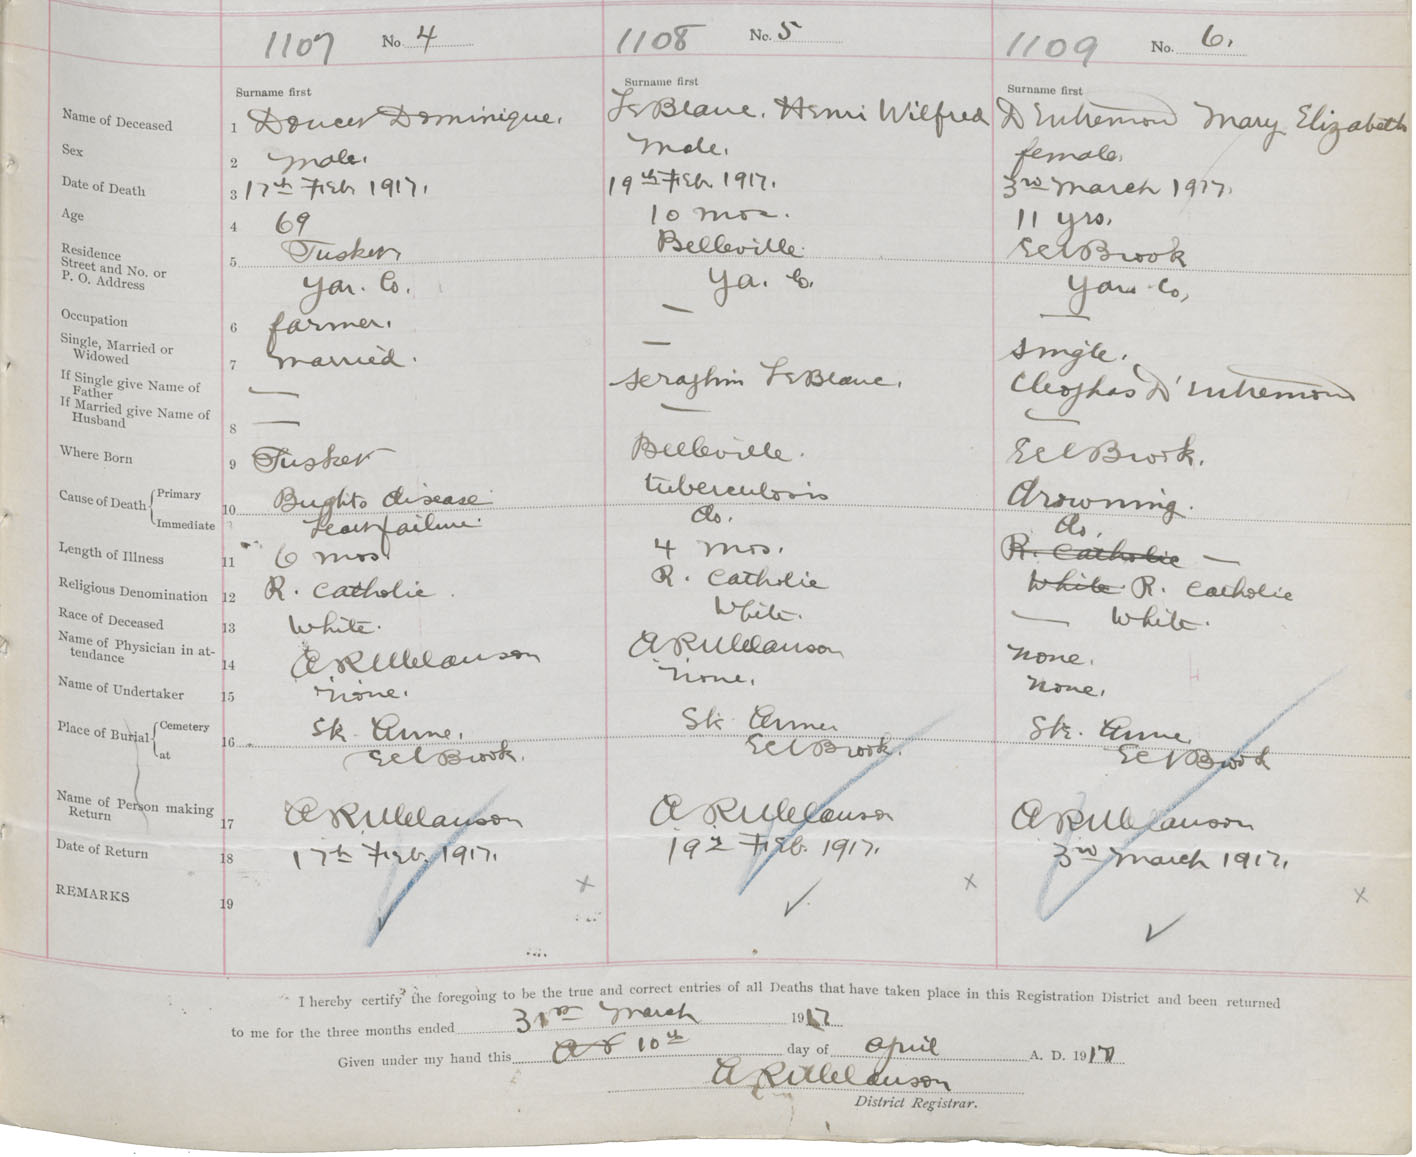 1107 No 4 1108 No. 5 1109 No. 6.
Surname first Surname first Surname first
Name of Deceased 1 Doucet Dominique. LeBlanc. Henri Wilfred D'Entremont Mary Elizabeth
Sex 2 male. male. female.
Date of Death 3 17th Feb 1917. 19th Feb. 1917. 3rd March 1917.
Age 4 69 10 mos. 11 yrs.
Residence
Street and No. or
P. O. Address 5 Tusket Belleville. Eel Brook
Yar. Co. Ya. Co. Yar. Co,
Occupation 6 farmer. — —
Single, Married or
Widowed 7 married. — single.
If Single give Name of
Father — Seraphin LeBlanc. Cleophas D'Entremont
If Married give Name of
Husband 8 — — —
Where Born 9 Tusket Belleville. Eel Brook.
Cause of Death Primary 10 Brights disease tuberculosis drowning.
Immediate heart failure. do. do.
Length of Illness 11 6 mos 4 mos. R. Catholic —
Religious Denomination 12 R. Catholic. R. Catholic White R. Catholic
Race of Deceased 13 White. White. — White.
Name of Physician in at-
tendance 14 A R Melanson A R Melanson none.
Name of Undertaker 15 none. none. none.
Place of Burial Cemetery 16 St. Anne. St. Anne Ste. Anne
at Eel Brook. Eel Brook. Eel Brook
Name of Person making
Return 17 A R Melanson A R Melanson A R Melanson
Date of Return 18 17th Feb. 1917. 19th Feb. 1917. 3rd March 1917.
REMARKS 19
I hereby certify the foregoing to be the true and correct entries of all Deaths that have taken place in this Registration District and been returned
to me for the three months ended 31st March 1917
Given under my hand this 10th day of April A. D. 1917
A R Melanson
District Registrar.